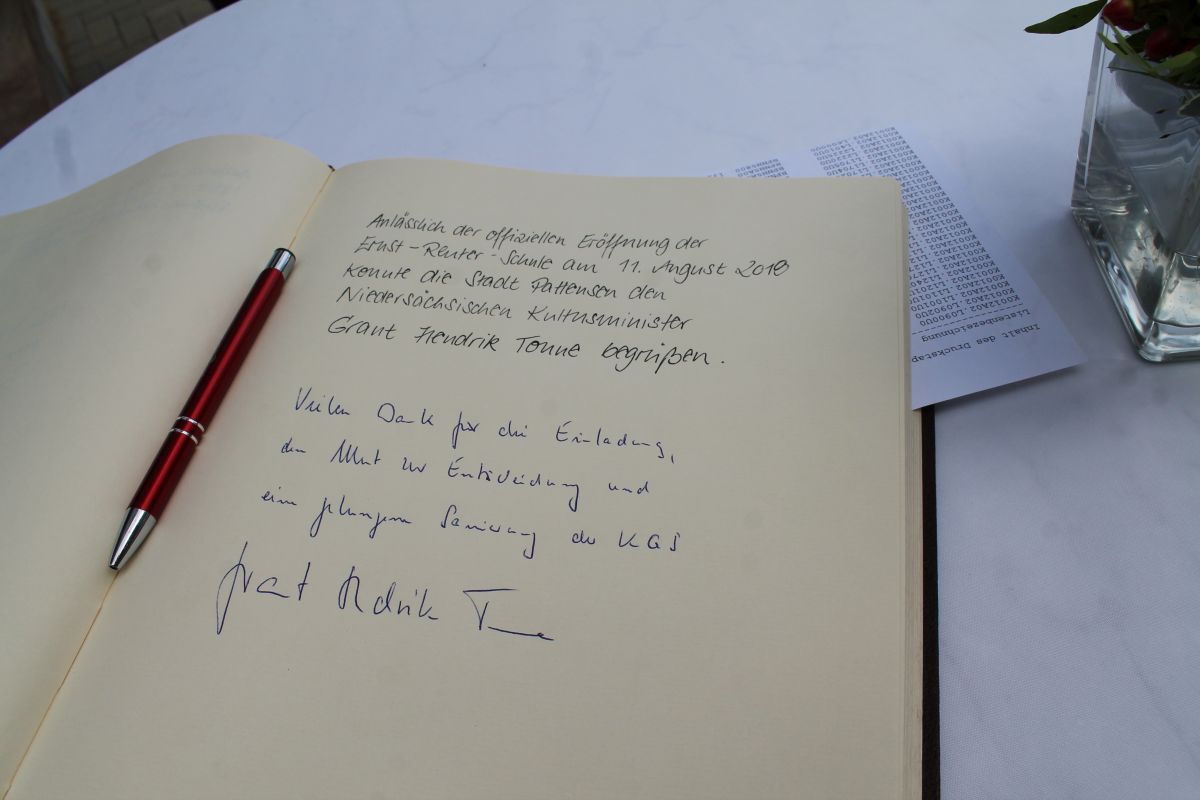 Anlässlich der offiziellen Eröffnung der
Ernst-Reuter-Schule am 11. August 2018
konnte die Stadt Pattensen den
Niedersächsischen Kultusminister
Grant Hendrik Tonne begrüßen.
Vielen Dank für die Einladung,
den Mut zur Entscheidung und
eine gelungene Sanierung der KGS
Grant Hendrik Tonne
Inhalt des Druckstap
Listenbezeichnung
K0012A02 L0900U0
K0012A02 L0902U0